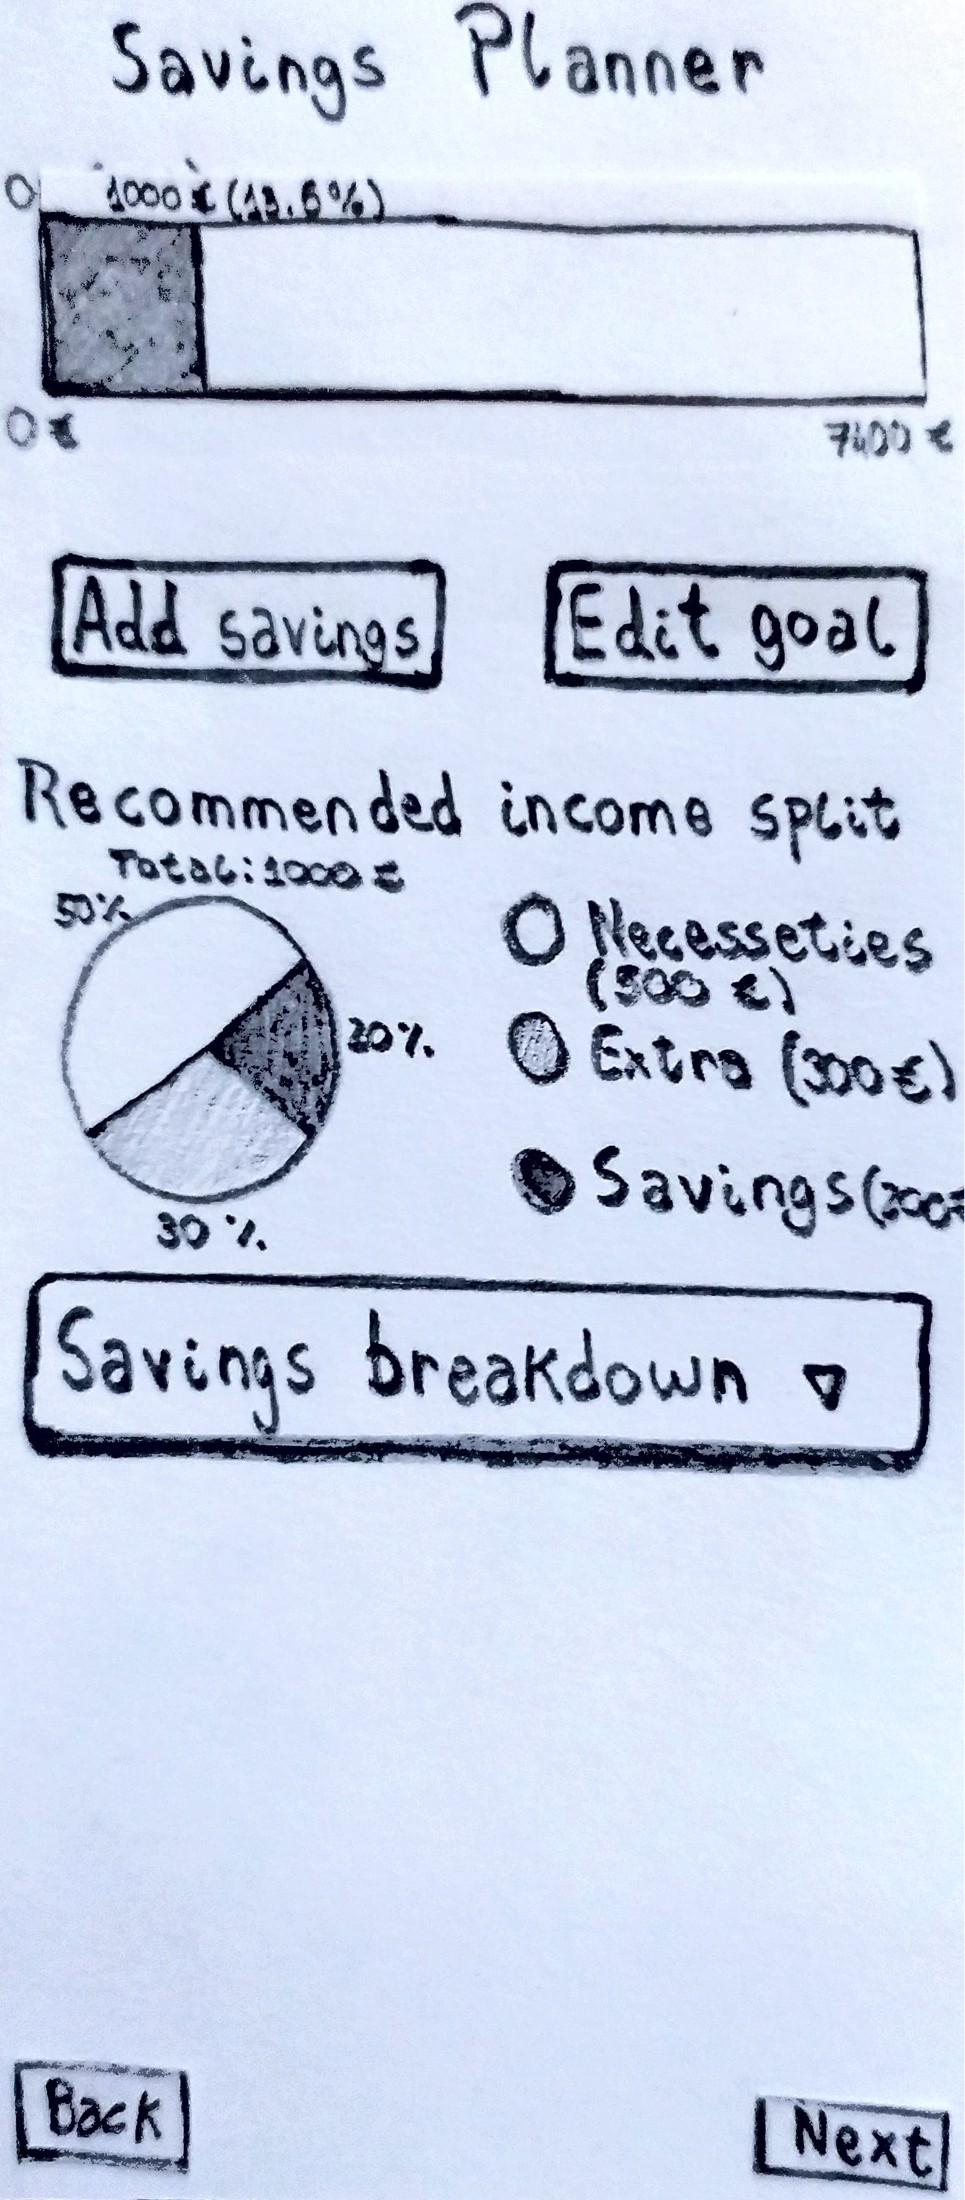 Savings Planner
0
1000 € (13.5%)
0 €
7400 €
Add savings
Edit goal
Recommended income split
Total: 1000 €
50%
Necesseties
(500 €)
20%.
Extra (300€)
Savings (200€
30 %.
Savings breakdown
Back
Next